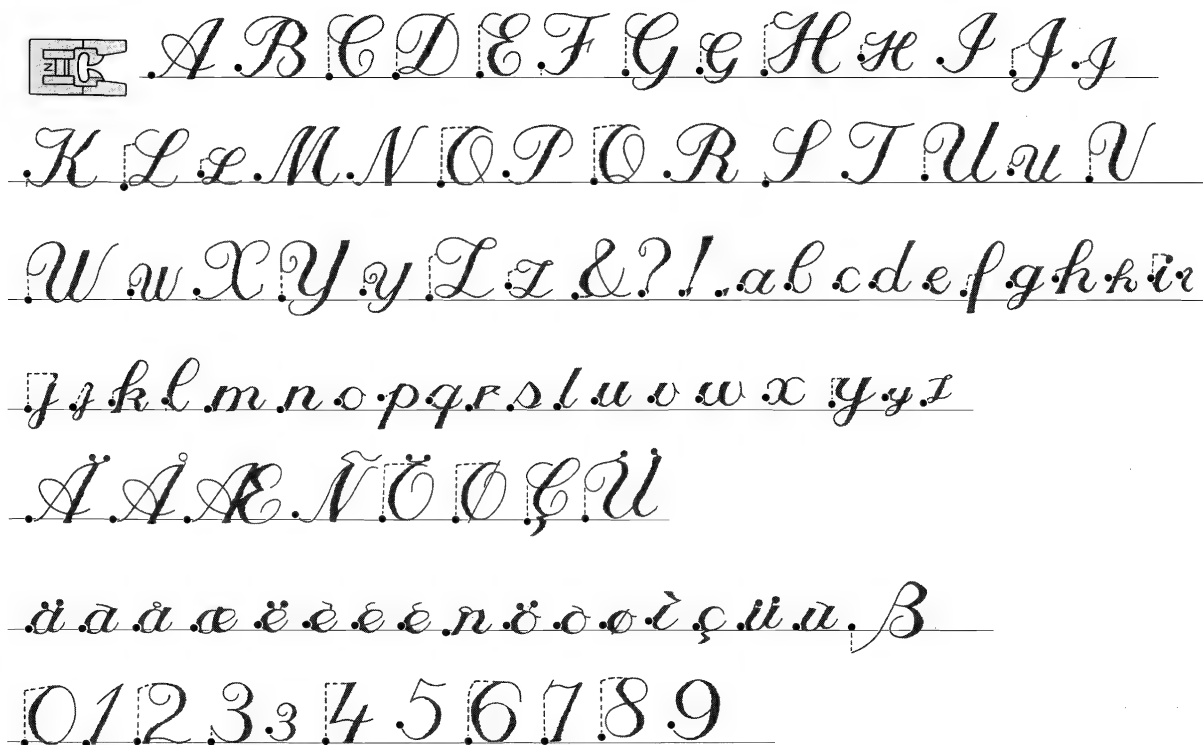 N A B C D E F G G H H I J J
K L L M N O P Q R S T U U V
W W X Y Y Z Z & ? ! . a b c d e f g h h i ı
j j k l m n o p q r s t u v w x y y z
Ä Å Æ Ñ Ö Ø Ç Ü
ä à å æ ë è é ê ñ ö ò ø ì ç ü ù ß
0 1 2 3 3 4 5 6 7 8 9